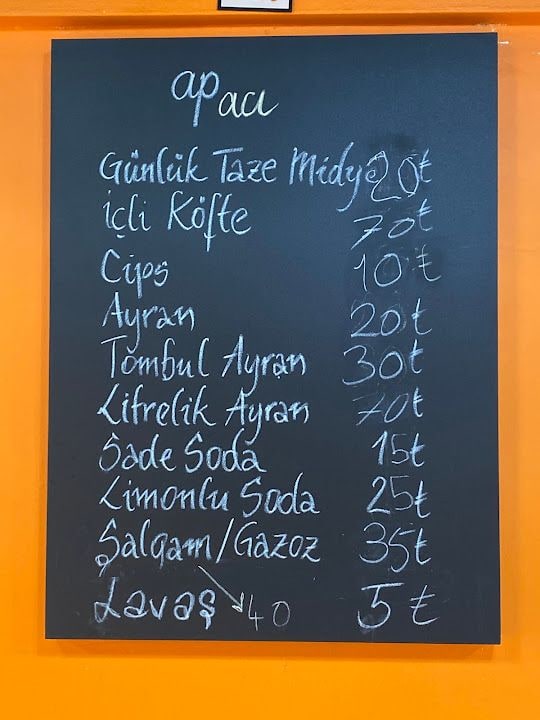 apacı
Günlük Taze Midye 20₺
içli Köfte 70₺
Cips 10₺
Ayran 20₺
Tombul Ayran 30₺
Litrelik Ayran 70₺
Sade Soda 15₺
Limonlu Soda 25₺
Şalgam/Gazoz 35₺
Lavaş 5₺
40